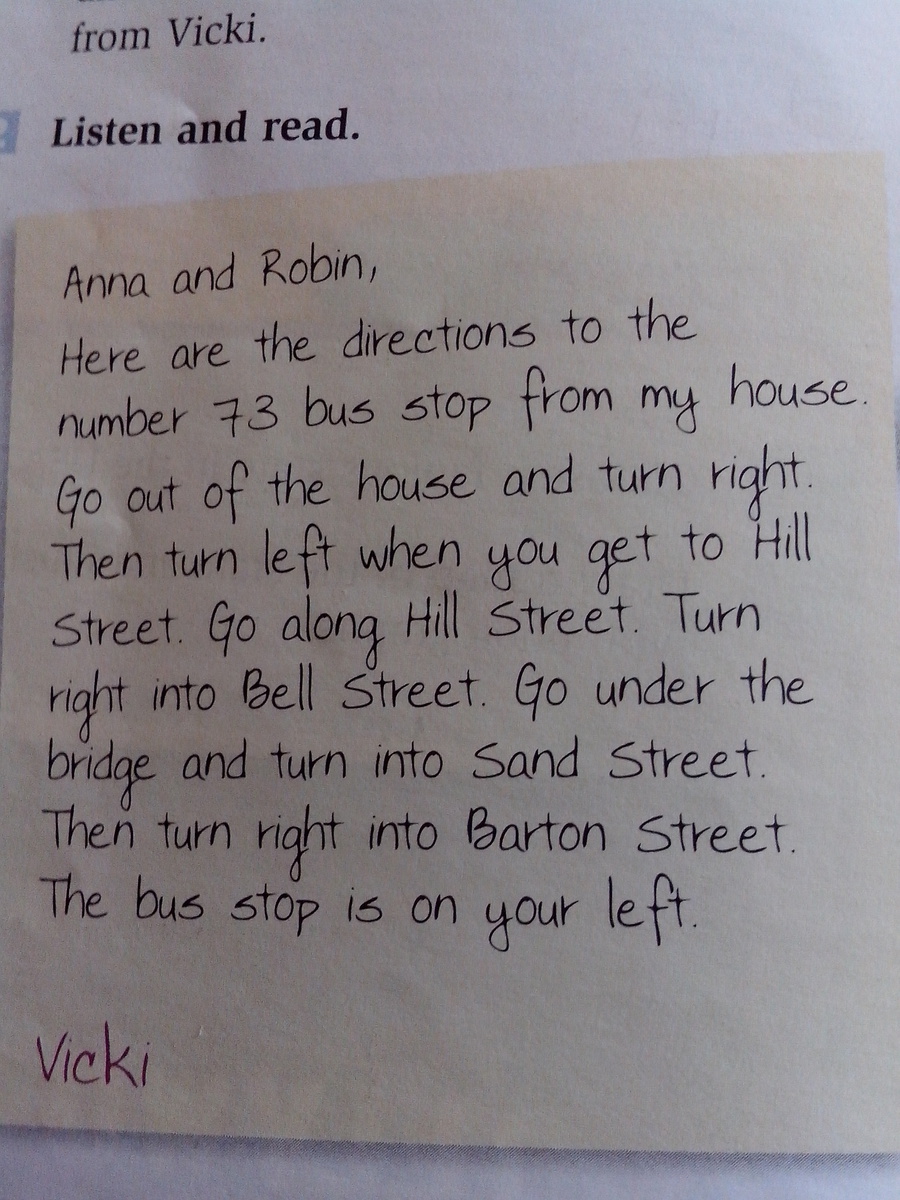 from Vicki.
Listen and read.
Anna and Robin,
Here are the directions to the
number 73 bus stop from my house.
Go out of the house and turn right.
Then turn left when you get to Hill
Street. Go along Hill Street. Turn
right into Bell Street. Go under the
bridge and turn into Sand Street.
Then turn right into Barton Street.
The bus stop is on your left.
Vicki